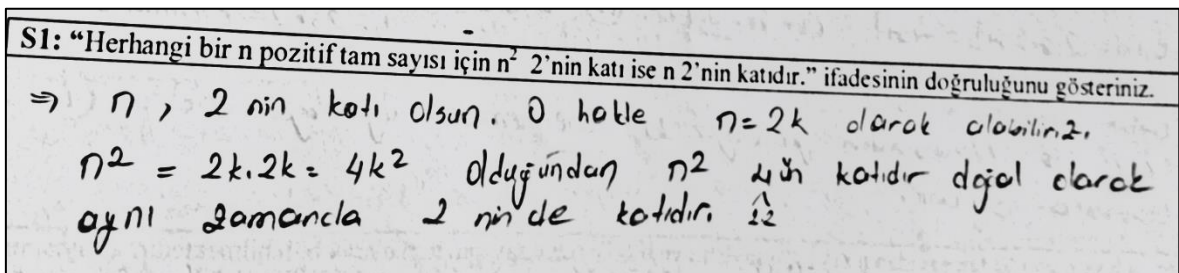 S1: “Herhangi bir n pozitif tam sayısı için n² 2’nin katı ise n 2’nin katıdır.” ifadesinin doğruluğunu gösteriniz.
⇒ n, 2 nin katı olsun. O halde n=2k olarak alabiliriz.
n² = 2k.2k = 4k² olduğundan n² 4 ün katıdır doğal olarak
aynı zamanda 2 nin de katıdır.